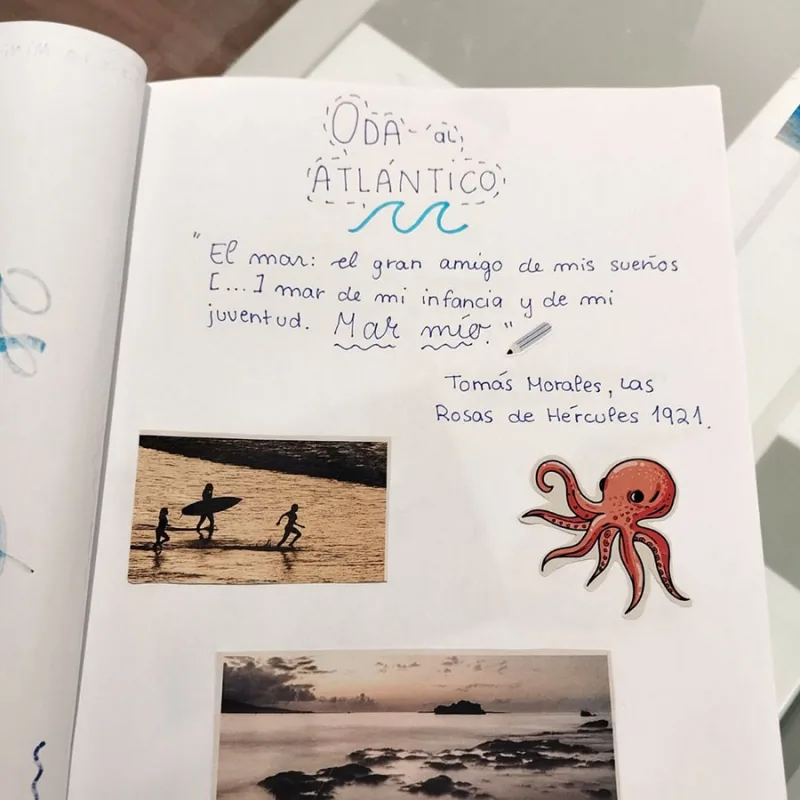 ODA al
ATLÁNTICO
"El mar: el gran amigo de mis sueños
[...] mar de mi infancia y de mi
juventud. Mar mío."
Tomás Morales, las
Rosas de Hércules 1921.